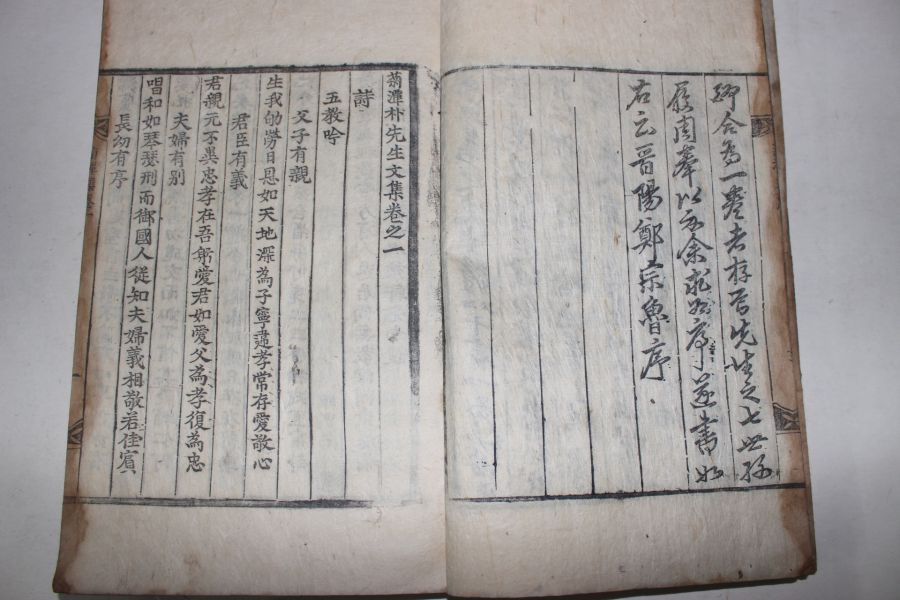 合為一先生之七世孫
奉以余求為序遂書如
右云晋陽鄭宗魯序
菊潭朴先生文集卷之一
詩
五教吟
父子有親
生我劬勞日恩如天地深為子寧違孝常存愛敬心
君臣有義
君親元不異忠孝在吾躬愛君如愛父為孝復為忠
夫婦有別
唱和如琴瑟刑而御國人從知夫婦義相敬若佳賓
長幼有序